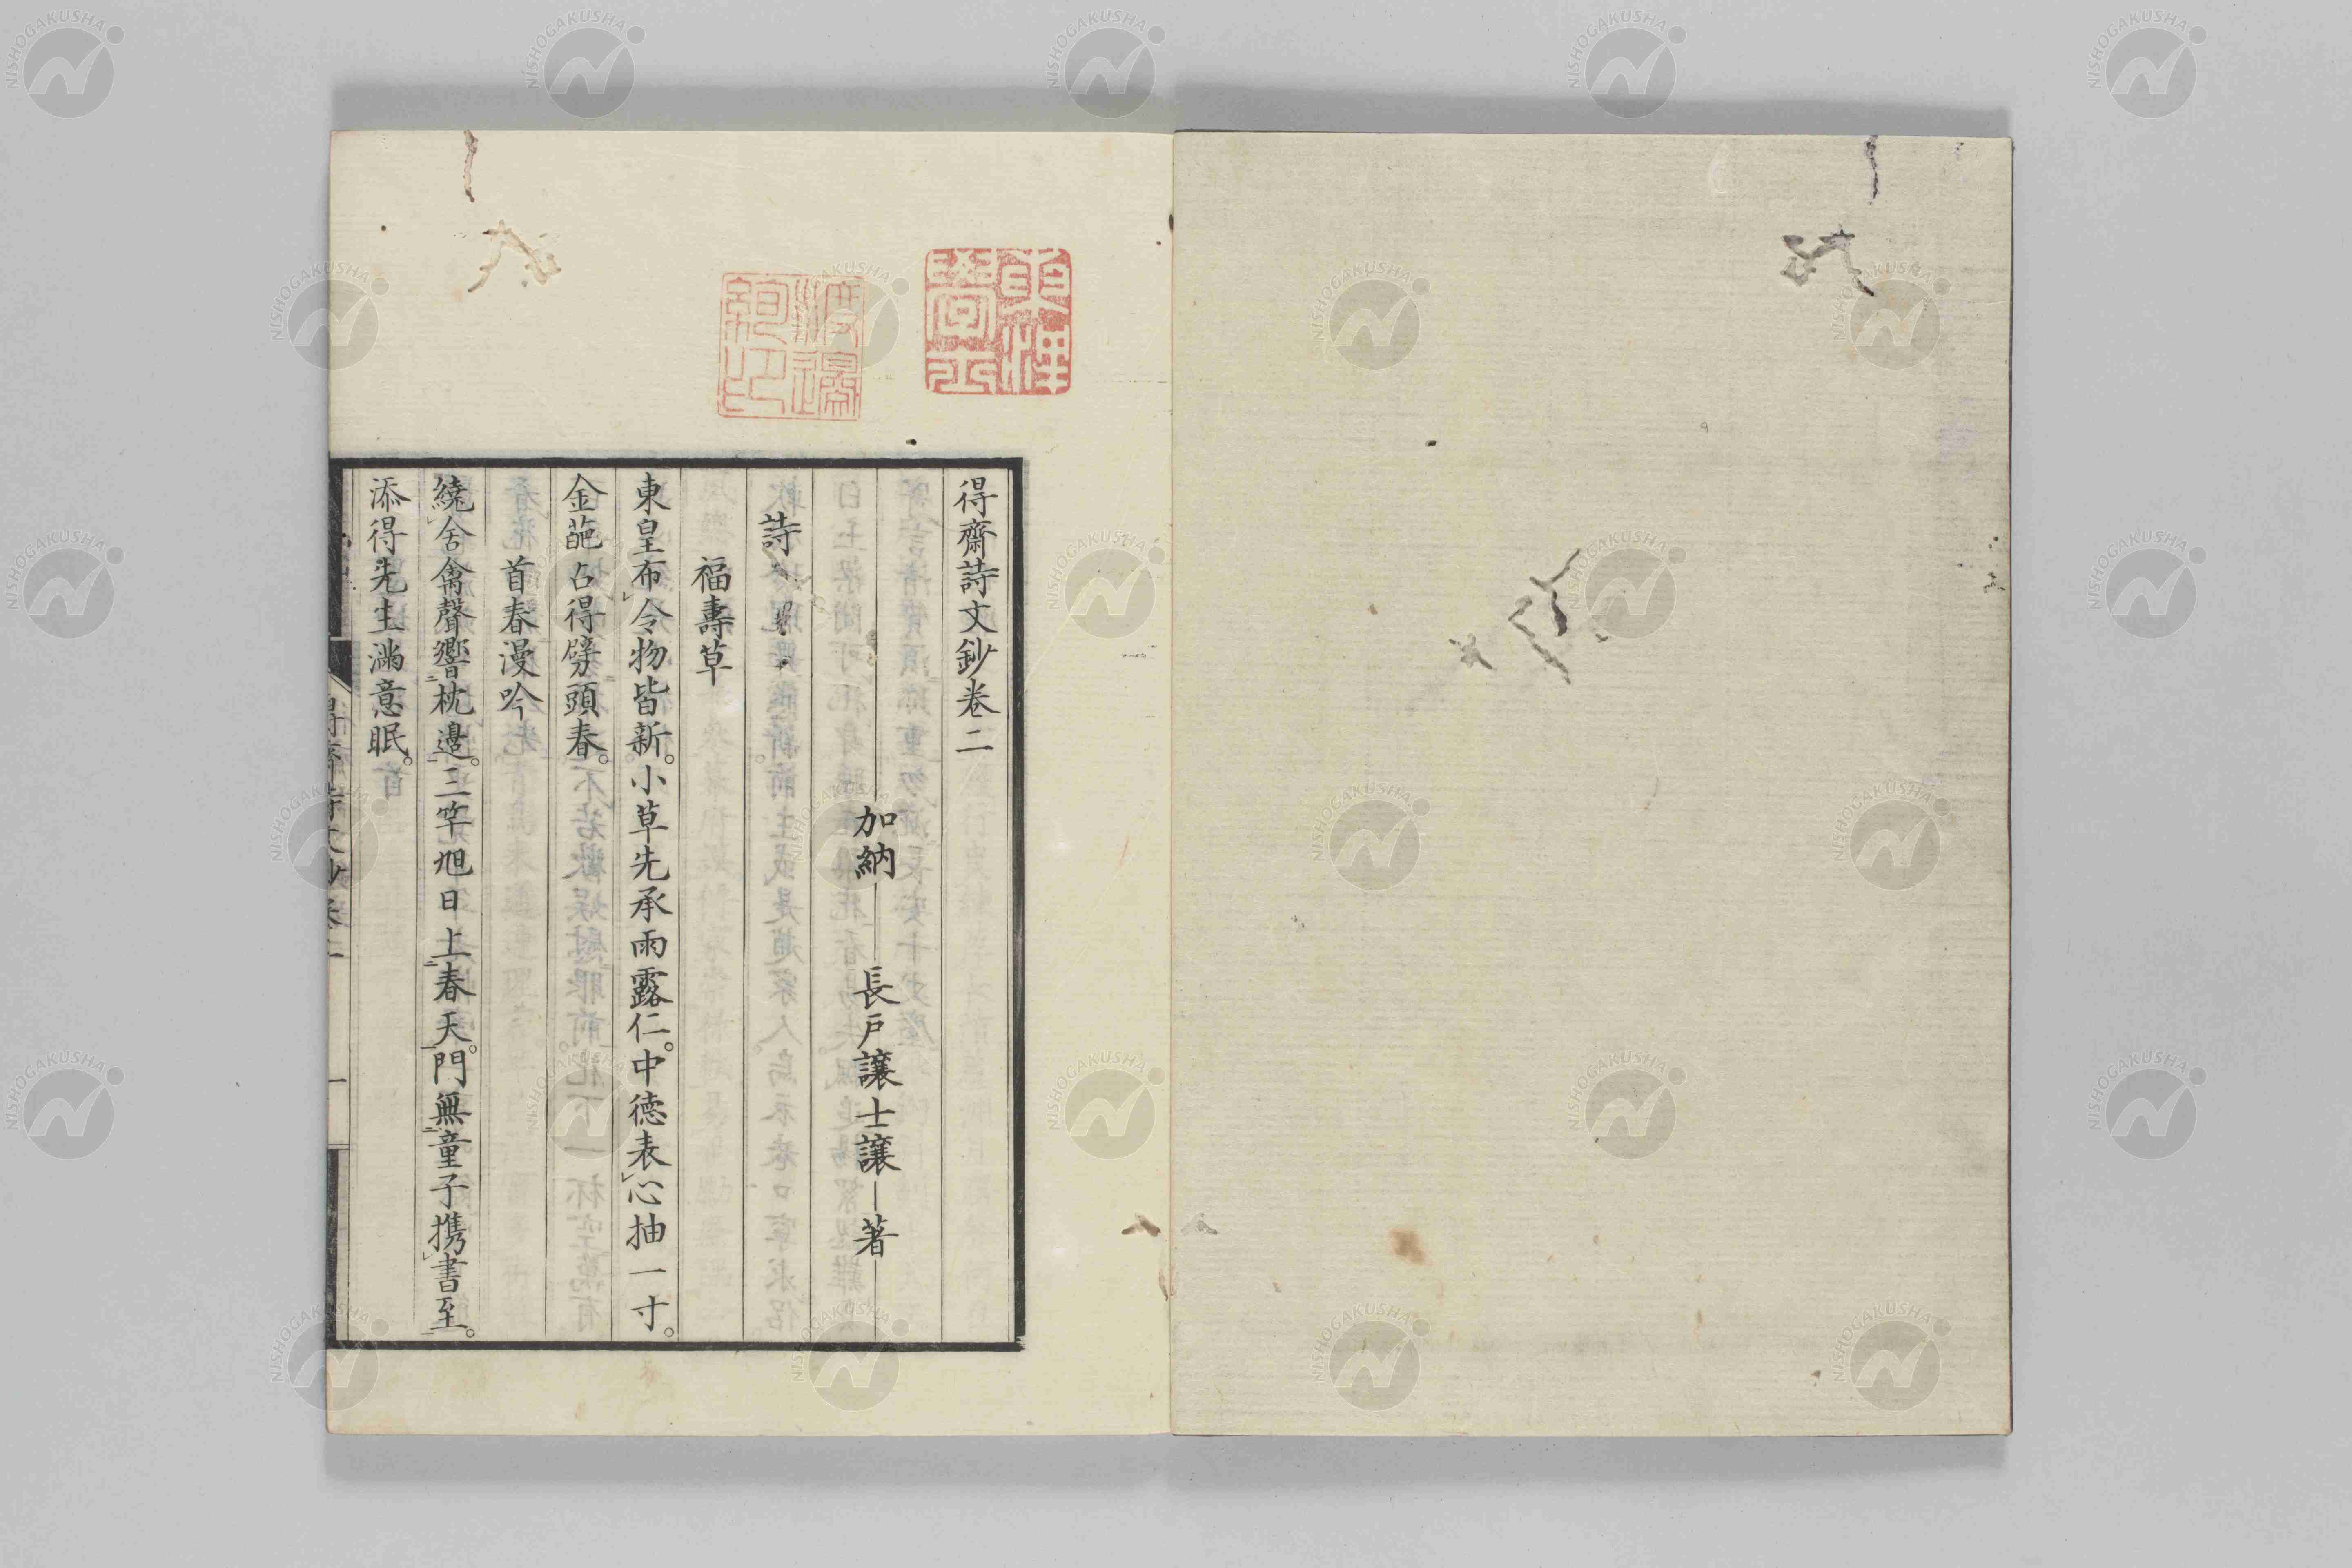 得齋詩文鈔卷二
加納 長戸譲士譲 著
詩
福壽草
東皇布令物皆新。小草先承雨露仁。中德表心抽一寸。
金葩占得劈頭春。
首春漫吟
繞舍禽聲響枕邊。三竿旭日上春天。門無童子携書至。
添得先生滿意眠。
渡邊絢印
NISHOGAKUSHA